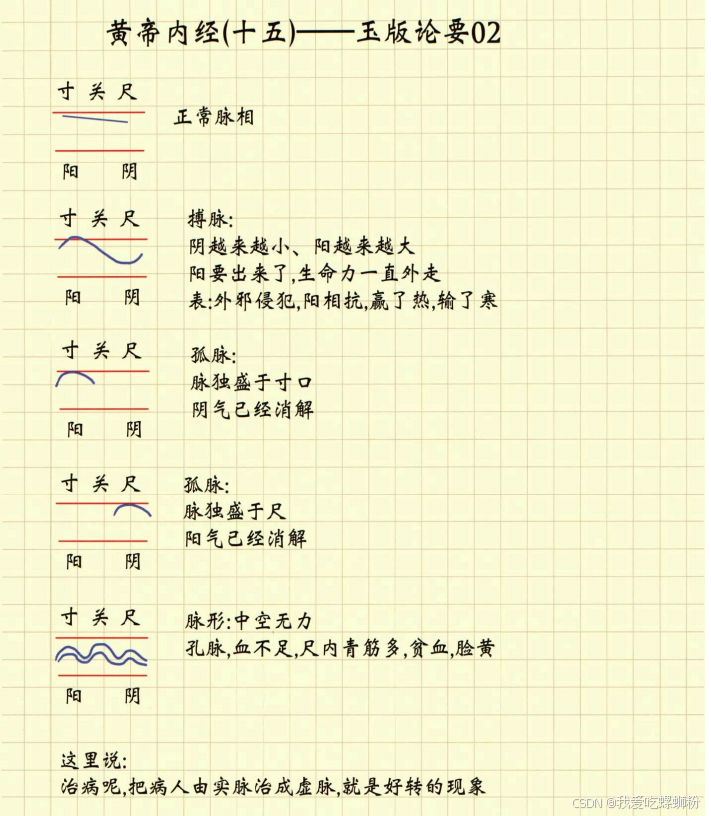 黄帝内经(十五)——玉版论要02
寸 关 尺
正常脉相
阳 阴
寸 关 尺
搏脉:
阴越来越小、阳越来越大
阳要出来了,生命力一直外走
阳 阴
表:外邪侵犯,阳相抗,赢了热,输了寒
寸 关 尺
孤脉:
脉独盛于寸口
阴气已经消解
阳 阴
寸 关 尺
孤脉:
脉独盛于尺
阳气已经消解
阳 阴
寸 关 尺
脉形:中空无力
孔脉,血不足,尺内青筋多,贫血,脸黄
阳 阴
这里说:
治病呢,把病人由实脉治成虚脉,就是好转的现象
CSDN @我爱吃螺蛳粉